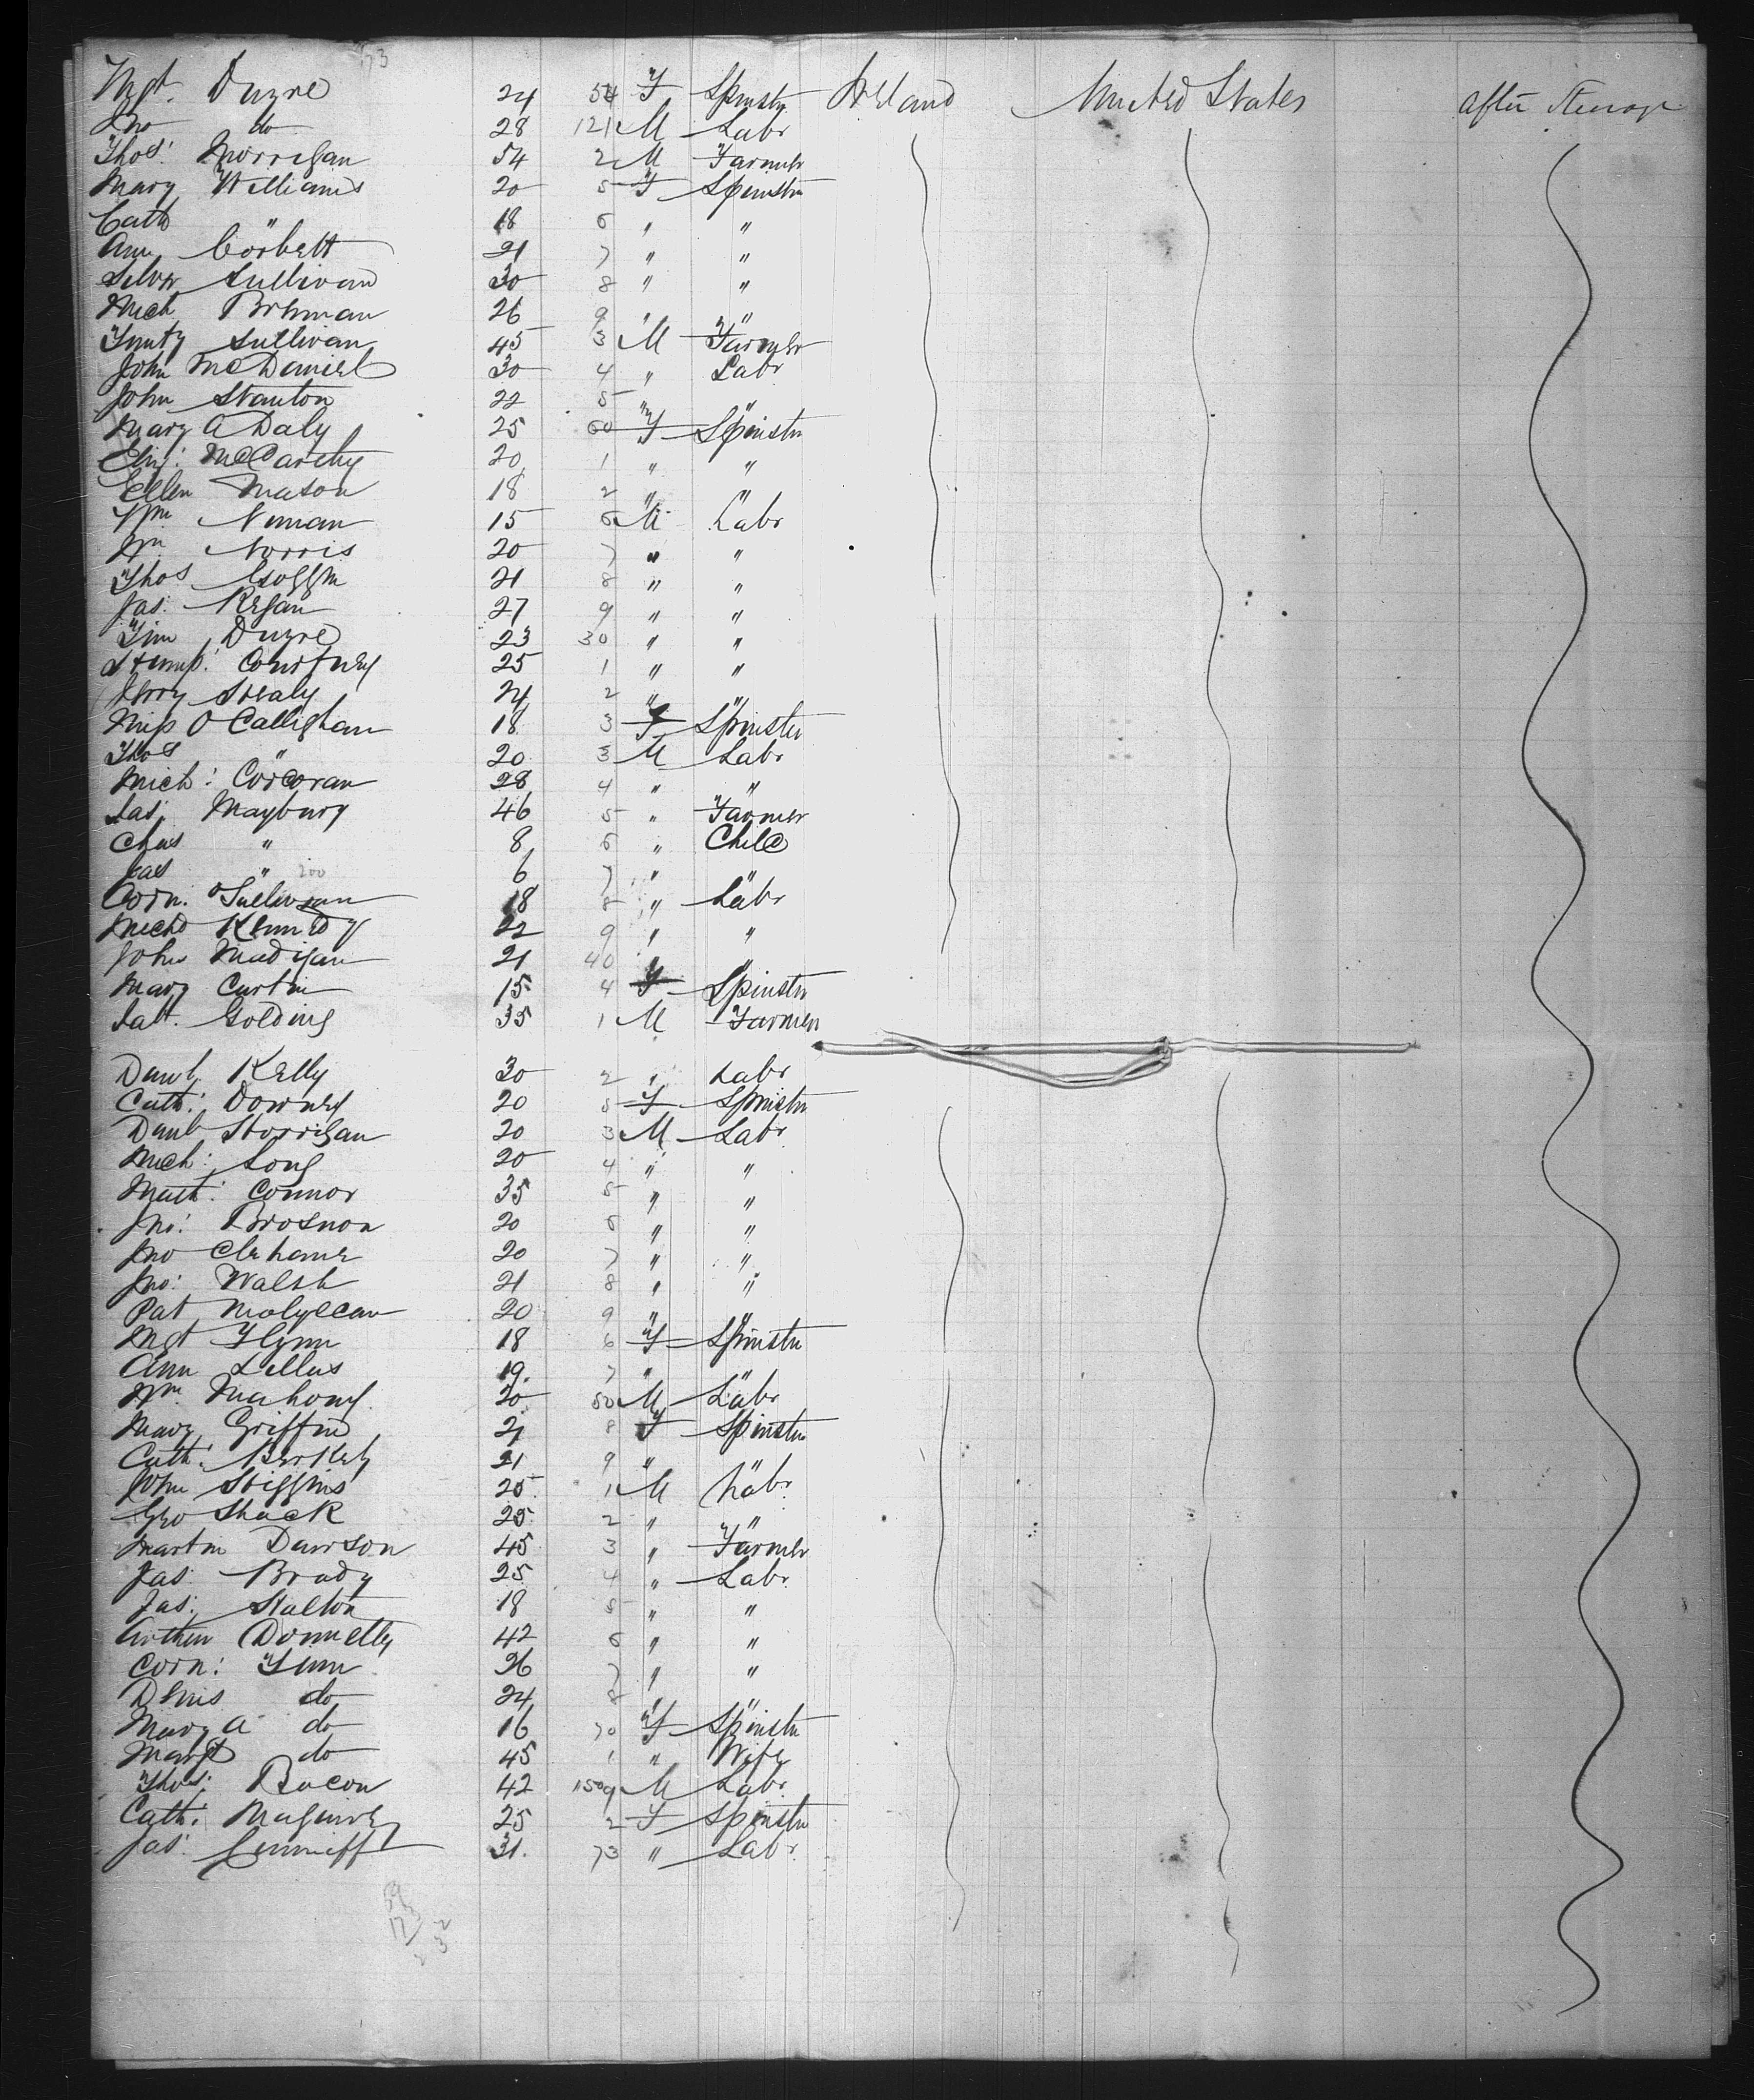 173
Mgt. Dwyre 24 54 F Spinstr Ireland United States after Steerage
Jno do 28 121 M Labr
Thos. Horrigan 54 2 M Farmer
Mary Williams 20 5 F Spinstr
Cath " 18 6 " "
Ann Corbett 21 7 " "
Sullivan 30 8 " "
Mich Brennan 26 9 " "
Timty Sullivan 45 3 M Farmer
John McDaniel 30 4 " Labr
John Stanton 22 5 " "
Mary A Daly 25 60 F Spinstr
Eliz: McCarthy 20 1 " "
Ellen Mason 18 2 " "
Wm 15 6 M Labr
Wm Norris 20 7 " "
Thos 21 8 " "
Jas. Regan 27 9 " "
Tim Dwyre 23 30 " "
Courtney 25 1 " "
Jerry Healy 24 2 " "
Miss O Callighan 18 3 F Spinster
Thos " 20 3 M Labr
Mich: Corcoran 28 4 " "
Jas. Maybury 46 5 " Farmer
Chas " 8 6 " Child
Jas " 200 6 7 " "
Corn. O Sullivan 18 8 " Labr
Michd Kennedy 22 9 " "
John Madigan 21 40 " "
Mary Curtin 15 4 F Spinstr
Pat. Golding 35 1 M Farmer
Danl. Kelly 30 2 " Labr
Cath: Downey 20 5 F Spinstr
Danl Horrigan 20 3 M Labr
Mich: Long 20 4 " "
Matt: Connor 35 5 " "
Jno: Brosnon 20 6 " "
Jno 20 7 " "
Jno: Walsh 21 8 " "
Pat 20 9 " "
Mgt Flynn 18 6 F Spinstr
Ann 19. 7 "
Wm Mahony 20 50 M Labr
Mary Griffin 21 8 F Spinstr
Cath: 21 9 "
John Higgins 25 1 M Labr
Geo Shack 25 2 " "
Martin Dawson 45 3 " Farmer
Jas. Brady 25 4 " Labr
Jas: 18 5 " "
Arthur Donnelly 42 6 " "
Corn: Finn 26 7 " "
Denis do 24 8 " "
Mary A do 16 70 F Spinstr
Margt do 45 1 " Wife
Thos. Bacon 42 159 M Labr
Cath. Maguire 25 2 F Spinstr
Jas. 31. 73 " Labr.